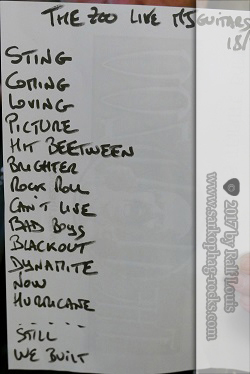 THE ZOO LIVE MSGUITARS
18/
STING
COMING
LOVING
PICTURE
HIT BEETWEEN
BRIGHTER
ROCK ROLL
CAN'T LIVE
BAD BOYS
BLACKOUT
DYNAMITE
NOW
HURRICANE
......
STILL
WE BUILT
2017 by Ralf Louis
www.sarkophag-rocks.com